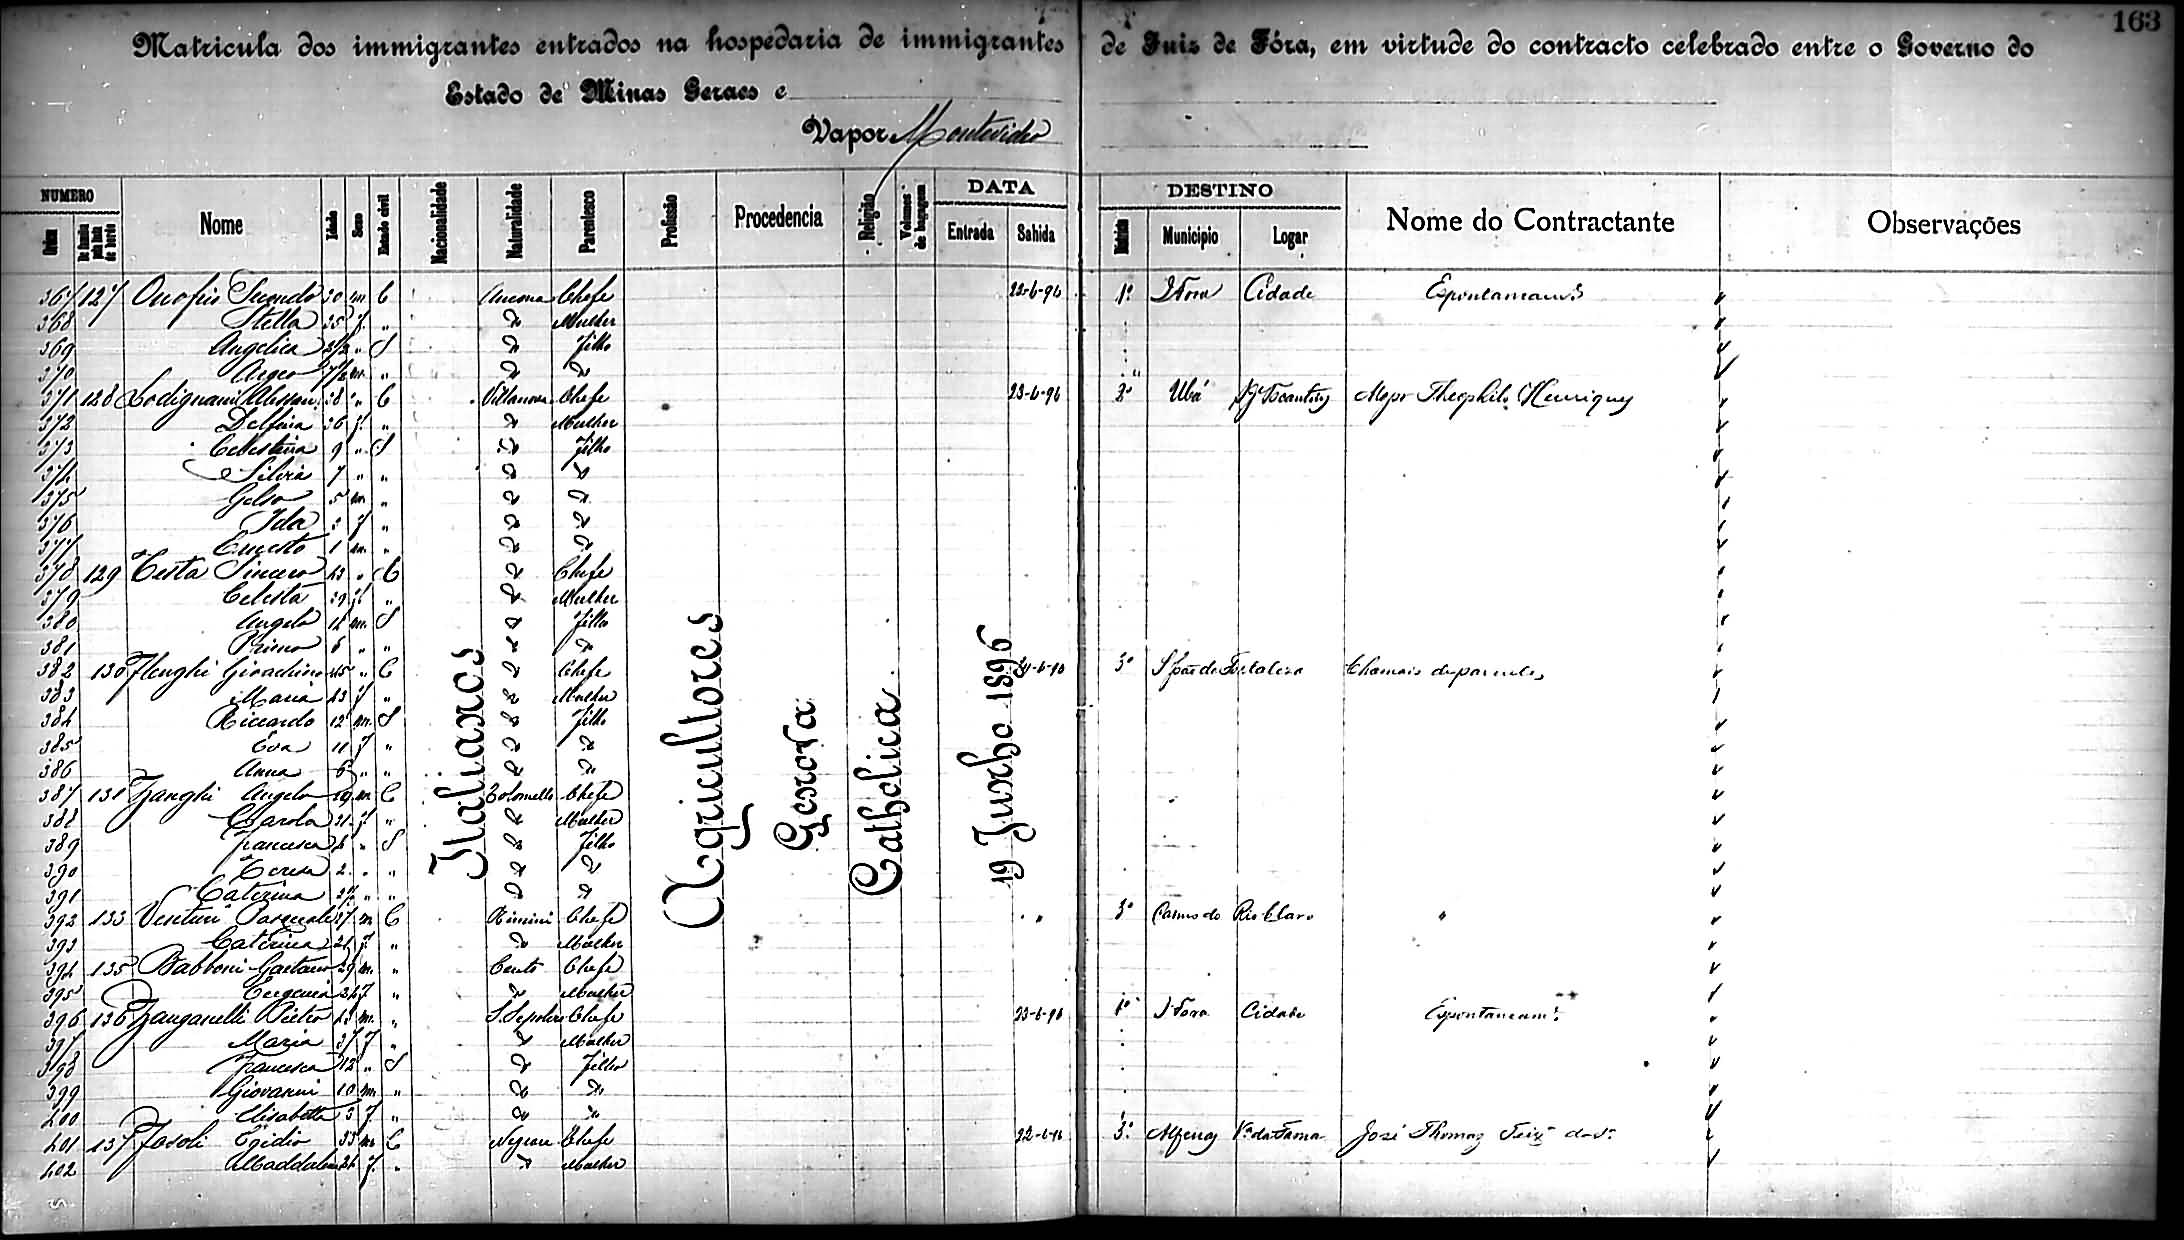 163
Matricula dos immigrantes entrados na hospedaria de immigrantes de Juiz de Fóra, em virtude do contracto celebrado entre o Governo do
Estado de Minas Geraes e
Vapor Montevideo
NUMERO DATA DESTINO
Ordem De familia pela lista de bordo Nome Idade Sexo Estado civil Nacionalidade Naturalidade Parentesco Profissão Procedencia Religião Volumes de bagagem Entrada Sahida Districto Municipio Logar Nome do Contractante Observações
Italianos
Agricultores
Genova
Catholica
19 Junho 1896
367 127 Onofrio 30 m C Ancona Chefe 22-6-96 1º J Fora Cidade
368 Stella 35 f. " Do Mulher
369 Angelica " S Do Filho
370 m. " Do Do
371 128 Lodignani 38 " C Villanova Chefe 23-6-96 2º Ubá Theophilo Henriques
372 Delfina 36 f. " Do Mulher
373 Celestina 9 " S Do Filho
374 Silvia 7 " " Do Do
375 Gelso 5 m " Do Do
376 Ida 3 f " Do Do
377 Ernesto 1 m. " Do Do
378 129 Testa Sincero 43 " C Do Chefe
379 Celesta 39 f. " Do Mulher
380 Angelo 12 m. S Do Filho
381 Primo " " Do Do
382 130 Gioachino 45 " C Do Chefe 21-6-96 3º Fortaleza Chamais de parentes
383 Maria 43 f " Do Mulher
384 Riccardo 12 m. S Do Filho
385 Eva 11 f " Do Do
386 Anna 6 " " Do Do
387 131 Zanghi Angelo m C Chefe
388 Carola 21 f. " Do Mulher
389 Francesca " S Do Filho
390 Teresa 2 " " Do Do
391 Caterina " " Do Do
392 133 Venturi Pasquale 27 m C Rimini Chefe " 3º Carmo do Rio Claro "
393 Caterina 21 f. " Do Mulher
394 135 Babboni Gaetano 29 m. " Cento Chefe
395 Eugenia 24 f " Do Mulher
396 136 Zanganelli Pietro 43 m. " S. Sepolcro Chefe 23-6-96 1º J Fora Cidade
397 Maria 37 f " Do Mulher
398 Francesca 12 " S Do Filho
399 Giovanni 10 m. " Do Do
400 Elisabetta 3 f. " Do Do
401 137 Fasoli Egidio 33 m C Chefe 22-6-96 3º Alfenas José Thomaz
402 Maddalena 24 f. " Do Mulher